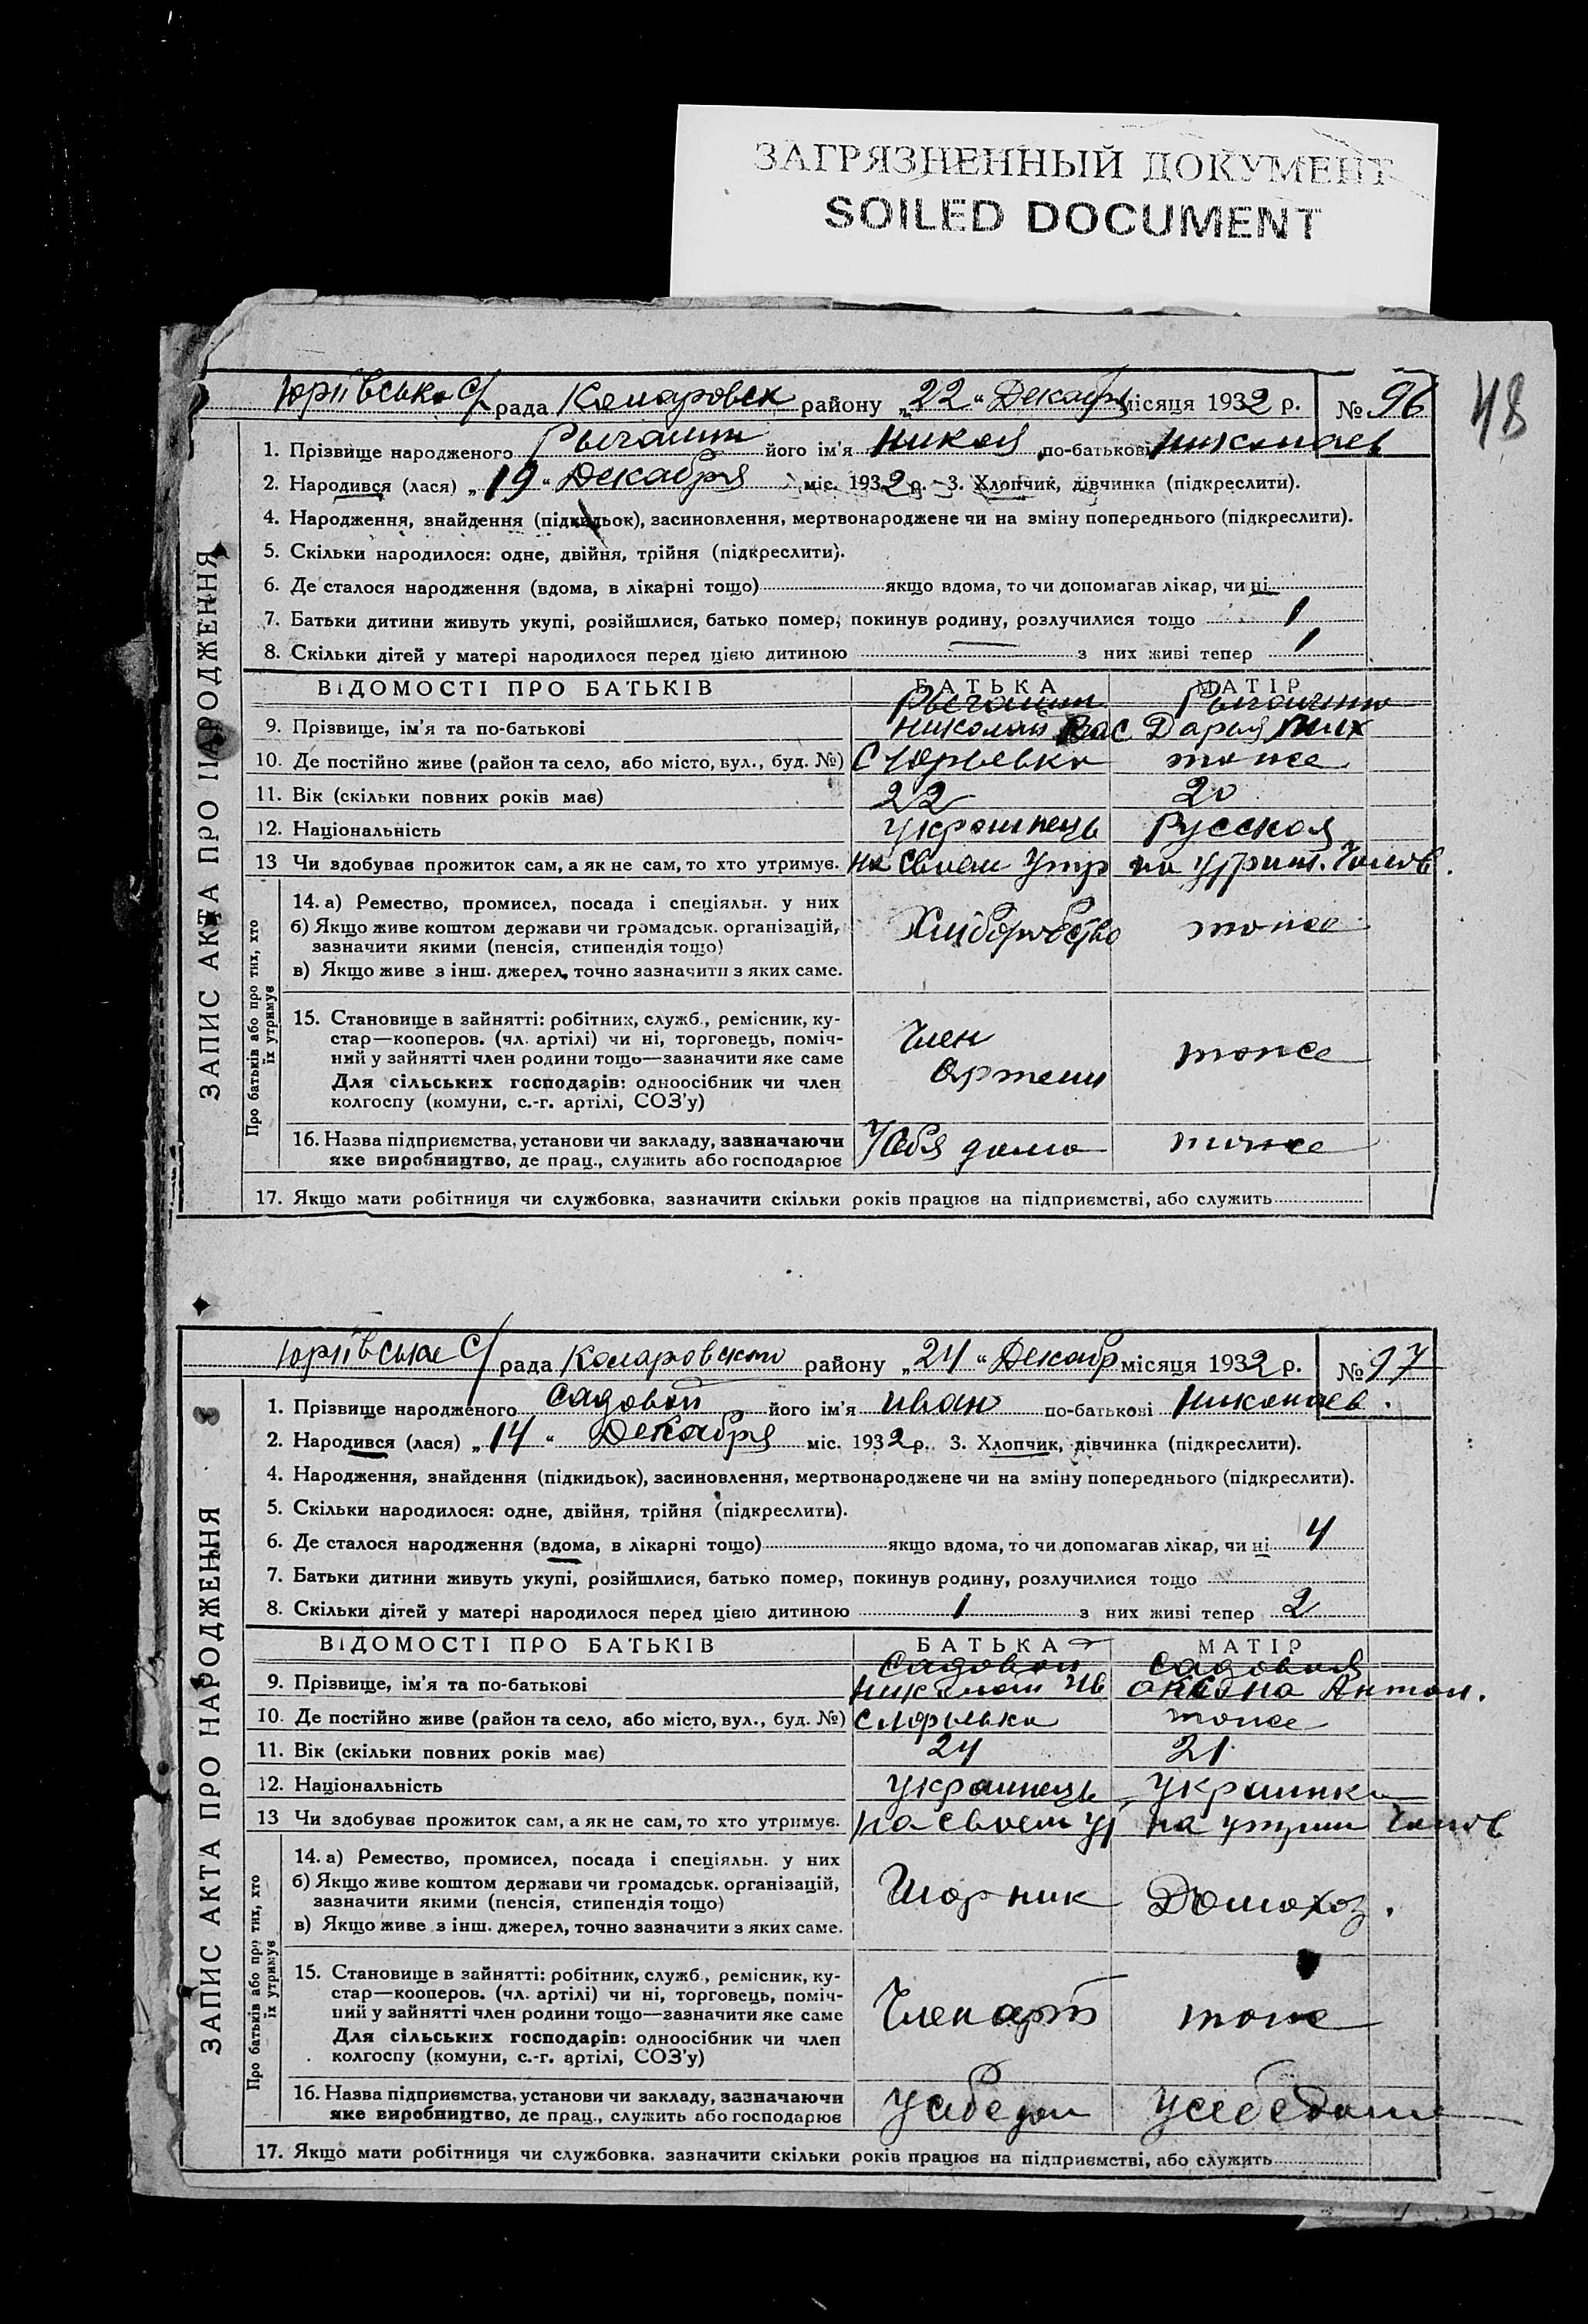 ЗАГРЯЗНЕННЫЙ ДОКУМЕНТ
SOILED DOCUMENT
48
Юріївська С/рада Комаровск району „22“ Декабря місяця 1932 р. № 96
1. Прізвище народженого його ім'я Никол по-батькові Николаев
2. Народився (лася) „19“ Декабря міс. 1932 р. - 3. Хлопчик, дівчинка (підкреслити).
4. Народження, знайдення (підкидьок), засиновлення, мертвонароджене чи на зміну попереднього (підкреслити).
5. Скільки народилося: одне, двійня, трійня (підкреслити).
6. Де сталося народження (вдома, в лікарні тощо) якщо вдома, то чи допомагав лікар, чи ні
7. Батьки дитини живуть укупі, розійшлися, батько помер, покинув родину, розлучилися тощо 1
8. Скільки дітей у матері народилося перед цією дитиною — з них живі тепер 1
ВІДОМОСТІ ПРО БАТЬКІВ БАТЬКА МАТІР
9. Прізвище, ім'я та по-батькові Николай Вас Дария Мих
10. Де постійно живе (район та село, або місто, вул., буд. №) С Юрьевка тоже
11. Вік (скільки повних років має) 22 20
12. Національність Украинець Русская
13 Чи здобуває прожиток сам, а як не сам, то хто утримує. на своем утр на утрим. Голов.
14. а) Ремество, промисел, посада і спеціяльн. у них
б) Якщо живе коштом держави чи громадськ. організацій,
зазначити якими (пенсія, стипендія тощо)
в) Якщо живе з інш. джерел, точно зазначити з яких саме.
Хліборобство тоже
15. Становище в зайнятті: робітник, служб., ремісник, ку-
стар—кооперов. (чл. артілі) чи ні, торговець, поміч-
ний у зайнятті член родини тощо—зазначити яке саме
Для сільських господарів: одноосібник чи член
колгоспу (комуни, с.-г. артілі, СОЗ'у)
Член
Артели
тоже
16. Назва підприємства, установи чи закладу, зазначаючи
яке виробництво, де прац., служить або господарює
У себя дома тоже
17. Якщо мати робітниця чи службовка, зазначити скільки років працює на підприємстві, або служить
ЗАПИС АКТА ПРО НАРОДЖЕННЯ
Про батьків або про тих, хто
їх утримує
Юріївська С/рада Комаровского району „24“ Декабр місяця 1932 р. № 97
1. Прізвище народженого Садовой його ім'я Иван по-батькові Николаев.
2. Народився (лася) „14“ Декабря міс. 1932 р. 3. Хлопчик, дівчинка (підкреслити).
4. Народження, знайдення (підкидьок), засиновлення, мертвонароджене чи на зміну попереднього (підкреслити).
5. Скільки народилося: одне, двійня, трійня (підкреслити).
6. Де сталося народження (вдома, в лікарні тощо) якщо вдома, то чи допомагав лікар, чи ні 4
7. Батьки дитини живуть укупі, розійшлися, батько помер, покинув родину, розлучилися тощо
8. Скільки дітей у матері народилося перед цією дитиною 1 з них живі тепер 2
ВІДОМОСТІ ПРО БАТЬКІВ БАТЬКА МАТІР
Садовой Садовая
9. Прізвище, ім'я та по-батькові Николай Ив Оксана Антон.
10. Де постійно живе (район та село, або місто, вул., буд. №) С Юрьевка тоже
11. Вік (скільки повних років має) 24 21
12. Національність Украинець Украинка
13 Чи здобуває прожиток сам, а як не сам, то хто утримує. на своем ут на утрим Голов
14. а) Ремество, промисел, посада і спеціяльн. у них
б) Якщо живе коштом держави чи громадськ. організацій,
зазначити якими (пенсія, стипендія тощо)
в) Якщо живе з інш. джерел, точно зазначити з яких саме.
Шорник Домохоз.
15. Становище в зайнятті: робітник, служб., ремісник, ку-
стар—кооперов. (чл. артілі) чи ні, торговець, поміч-
ний у зайнятті член родини тощо—зазначити яке саме
Для сільських господарів: одноосібник чи член
колгоспу (комуни, с.-г. артілі, СОЗ'у)
Член арт тоже
16. Назва підприємства, установи чи закладу, зазначаючи
яке виробництво, де прац., служить або господарює
У себе дом У себе дома
17. Якщо мати робітниця чи службовка, зазначити скільки років працює на підприємстві, або служить
ЗАПИС АКТА ПРО НАРОДЖЕННЯ
Про батьків або про тих, хто
їх утримує